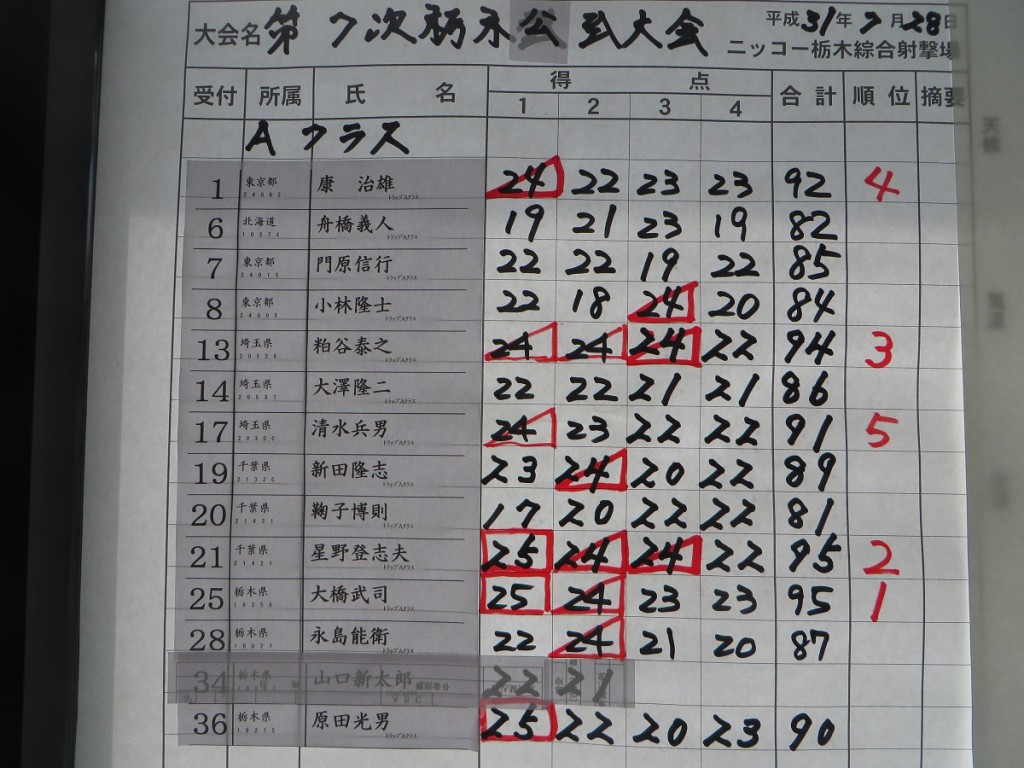 大会名 第7次栃木公式大会 平成31年7月28日
ニッコー栃木綜合射撃場
受付 所属 氏名 得点 合計 順位 摘要
1 2 3 4
Aクラス
1 東京都 康 治雄 24 22 23 23 92 4
6 北海道 舟橋義人 19 21 23 19 82
7 東京都 門原信行 22 22 19 22 85
8 東京都 小林隆士 22 18 24 20 84
13 埼玉県 粕谷泰之 24 24 24 22 94 3
14 埼玉県 大澤隆二 22 22 21 21 86
17 埼玉県 清水兵男 24 23 22 22 91 5
19 千葉県 新田隆志 23 24 20 22 89
20 千葉県 鞠子博則 17 20 22 22 81
21 千葉県 星野登志夫 25 24 24 22 95 2
25 栃木県 大橋武司 25 24 23 23 95 1
28 栃木県 永島能衛 22 24 21 20 87
34 栃木県 山口新太郎 22 21
36 栃木県 原田光男 25 22 20 23 90